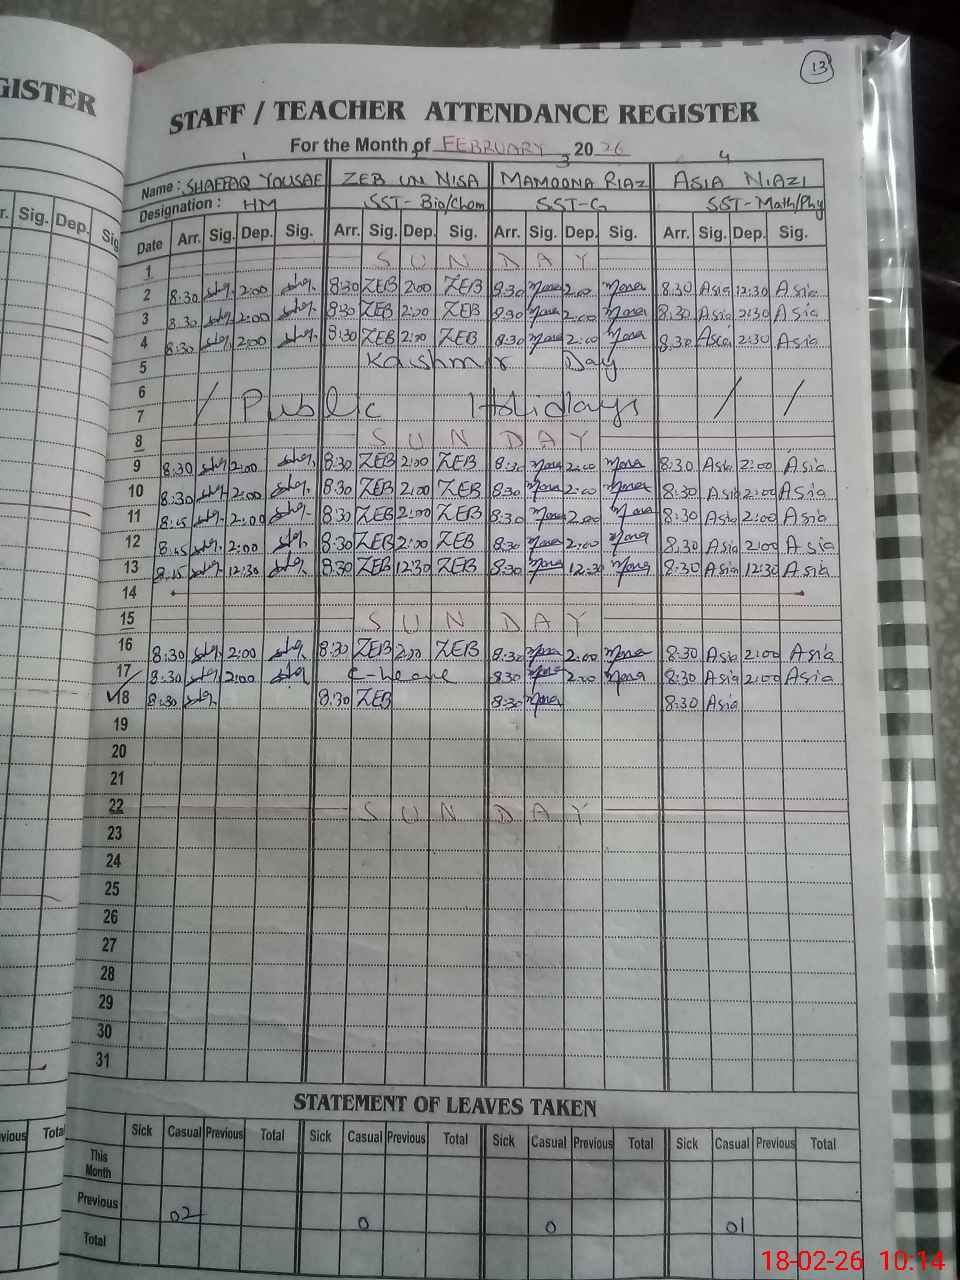 GISTER
13
STAFF / TEACHER ATTENDANCE REGISTER
For the Month of FEBRUARY 2026
1 2 3 4
Name: SHAFFAQ YOUSAF ZEB UN NISA MAMOONA RIAZ ASIA NIAZI
Designation: HM SST-Bio/Chem SST-G SST-Math/Phy
r. Sig. Dep. Sig
Date Arr. Sig. Dep. Sig. Arr. Sig. Dep. Sig. Arr. Sig. Dep. Sig. Arr. Sig. Dep. Sig.
1 SUNDAY
2 8:30 2:00 8:30 ZEB 2:00 ZEB 8:30 Mona 2:00 Mona 8:30 Asia 12:30 Asia
3 8:30 2:00 8:30 ZEB 2:00 ZEB 8:30 Mona 2:00 Mona 8:30 Asia 2:30 Asia
4 8:30 2:00 8:30 ZEB 2:00 ZEB 8:30 Mona 2:00 Mona 8:30 Asia 2:30 Asia
5 Kashmir Day
6
7 Public Holidays
8 SUNDAY
9 8:30 2:00 8:30 ZEB 2:00 ZEB 8:30 Mona 2:00 Mona 8:30 Asia 2:00 Asia
10 8:30 2:00 8:30 ZEB 2:00 ZEB 8:30 Mona 2:00 Mona 8:30 Asia 2:00 Asia
11 8:15 2:00 8:30 ZEB 2:00 ZEB 8:30 Mona 2:00 Mona 8:30 Asia 2:00 Asia
12 8:15 2:00 8:30 ZEB 2:00 ZEB 8:30 Mona 2:00 Mona 8:30 Asia 2:00 Asia
13 8:15 12:30 8:30 ZEB 12:30 ZEB 8:30 Mona 12:30 Mona 8:30 Asia 12:30 Asia
14
15 SUNDAY
16 8:30 2:00 8:30 ZEB 2:00 ZEB 8:30 Mona 2:00 Mona 8:30 Asia 2:00 Asia
17 8:30 2:00 C-Leave 8:30 Mona 2:00 Mona 8:30 Asia 2:00 Asia
18 8:30 8:30 ZEB 8:30 Mona 8:30 Asia
19
20
21
22 SUNDAY
23
24
25
26
27
28
29
30
31
STATEMENT OF LEAVES TAKEN
vious Total Sick Casual Previous Total Sick Casual Previous Total Sick Casual Previous Total Sick Casual Previous Total
This Month
Previous 02 0 0 01
Total
18-02-26 10:14